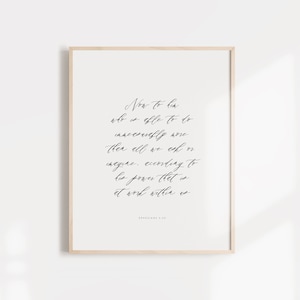 Now to him
who is able to do
immeasurably more
than all we ask or
imagine, according to
his power that is
at work within us
EPHESIANS 3:20